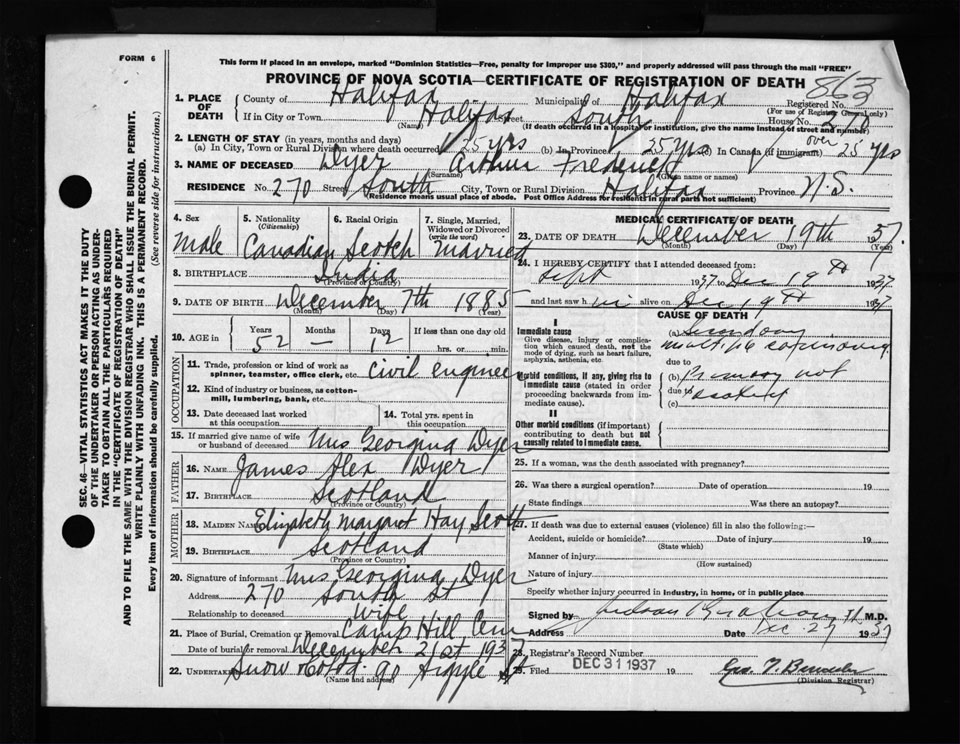 FORM 6
This form if placed in an envelope, marked "Dominion Statistics—Free, penalty for improper use $300," and properly addressed will pass through the mail "FREE"
PROVINCE OF NOVA SCOTIA—CERTIFICATE OF REGISTRATION OF DEATH
863
1. PLACE OF DEATH
County of Halifax Municipality of Halifax Registered No.
(For use of Registrar General only)
If in City or Town Halifax Street South House No. 270
(Name) (If death occurred in a hospital or institution, give the name instead of street and number)
2. LENGTH OF STAY (in years, months and days)
(a) In City, Town or Rural Division where death occurred 25 yrs (b) In Province 25 yrs (c) In Canada (if immigrant) over 25 yrs
3. NAME OF DECEASED Dyer Arthur Frederick
(Surname) (Given name or names)
RESIDENCE No. 270 Street South City, Town or Rural Division Halifax Province N.S.
(Residence means usual place of abode. Post Office Address for residents in rural parts not sufficient)
4. Sex
Male
5. Nationality
(Citizenship)
Canadian
6. Racial Origin
Scotch
7. Single, Married, Widowed or Divorced
(write the word)
Married
8. BIRTHPLACE India
(Province or Country)
9. DATE OF BIRTH December 7th 1885
(Month) (Day) (Year)
10. AGE in
Years Months Days If less than one day old
52 — 12 hrs. or min.
OCCUPATION
11. Trade, profession or kind of work as spinner, teamster, office clerk, etc. Civil engineer
12. Kind of industry or business, as cotton-mill, lumbering, bank, etc.
13. Date deceased last worked at this occupation
14. Total yrs. spent in this occupation
15. If married give name of wife or husband of deceased Mrs Georgina Dyer
FATHER
16. NAME James Alex Dyer
17. BIRTHPLACE Scotland
(Province or Country)
MOTHER
18. MAIDEN NAME Elizabeth Margaret Hay Scott
19. BIRTHPLACE Scotland
(Province or Country)
20. Signature of informant Mrs Georgina Dyer
Address 270 South St
Relationship to deceased Wife
21. Place of Burial, Cremation or Removal Camp Hill Cem
Date of burial or removal December 21st 1937
22. Undertaker Snow & Co Ltd. 90 Argyle St
(Name and address)
MEDICAL CERTIFICATE OF DEATH
23. DATE OF DEATH December 19th 37.
(Month) (Day) (Year)
24. I HEREBY CERTIFY that I attended deceased from:
Sept 1937 to Dec 19th 1937
and last saw him alive on Dec 19th 1937
CAUSE OF DEATH
I
Immediate cause
Give disease, injury or complication which caused death, not the mode of dying, such as heart failure, asphyxia, asthenia, etc.
(a) Secondary
multiple carcinoma.
due to
Morbid conditions, if any, giving rise to immediate cause (stated in order proceeding backwards from immediate cause).
(b) Primary not
due to
(c)
II
Other morbid conditions (if important) contributing to death but not causally related to immediate cause.
25. If a woman, was the death associated with pregnancy?
26. Was there a surgical operation? Date of operation 19
State findings Was there an autopsy?
27. If death was due to external causes (violence) fill in also the following:—
Accident, suicide or homicide? Date of injury 19
(State which)
Manner of injury
(How sustained)
Nature of injury
Specify whether injury occurred in industry, in home, or in public place
Signed by Judson M.D.
Address Date Dec. 27 1937
28. Registrar's Record Number
29. Filed DEC 31 1937 19
(Division Registrar)
SEC. 46—VITAL STATISTICS ACT MAKES IT THE DUTY
OF THE UNDERTAKER OR PERSON ACTING AS UNDER-
TAKER TO OBTAIN ALL THE PARTICULARS REQUIRED
IN THE "CERTIFICATE OF REGISTRATION OF DEATH"
AND TO FILE THE SAME WITH THE DIVISION REGISTRAR WHO SHALL ISSUE THE BURIAL PERMIT.
WRITE PLAINLY WITH UNFADING INK. THIS IS A PERMANENT RECORD.
Every item of information should be carefully supplied. (See reverse side for instructions.)